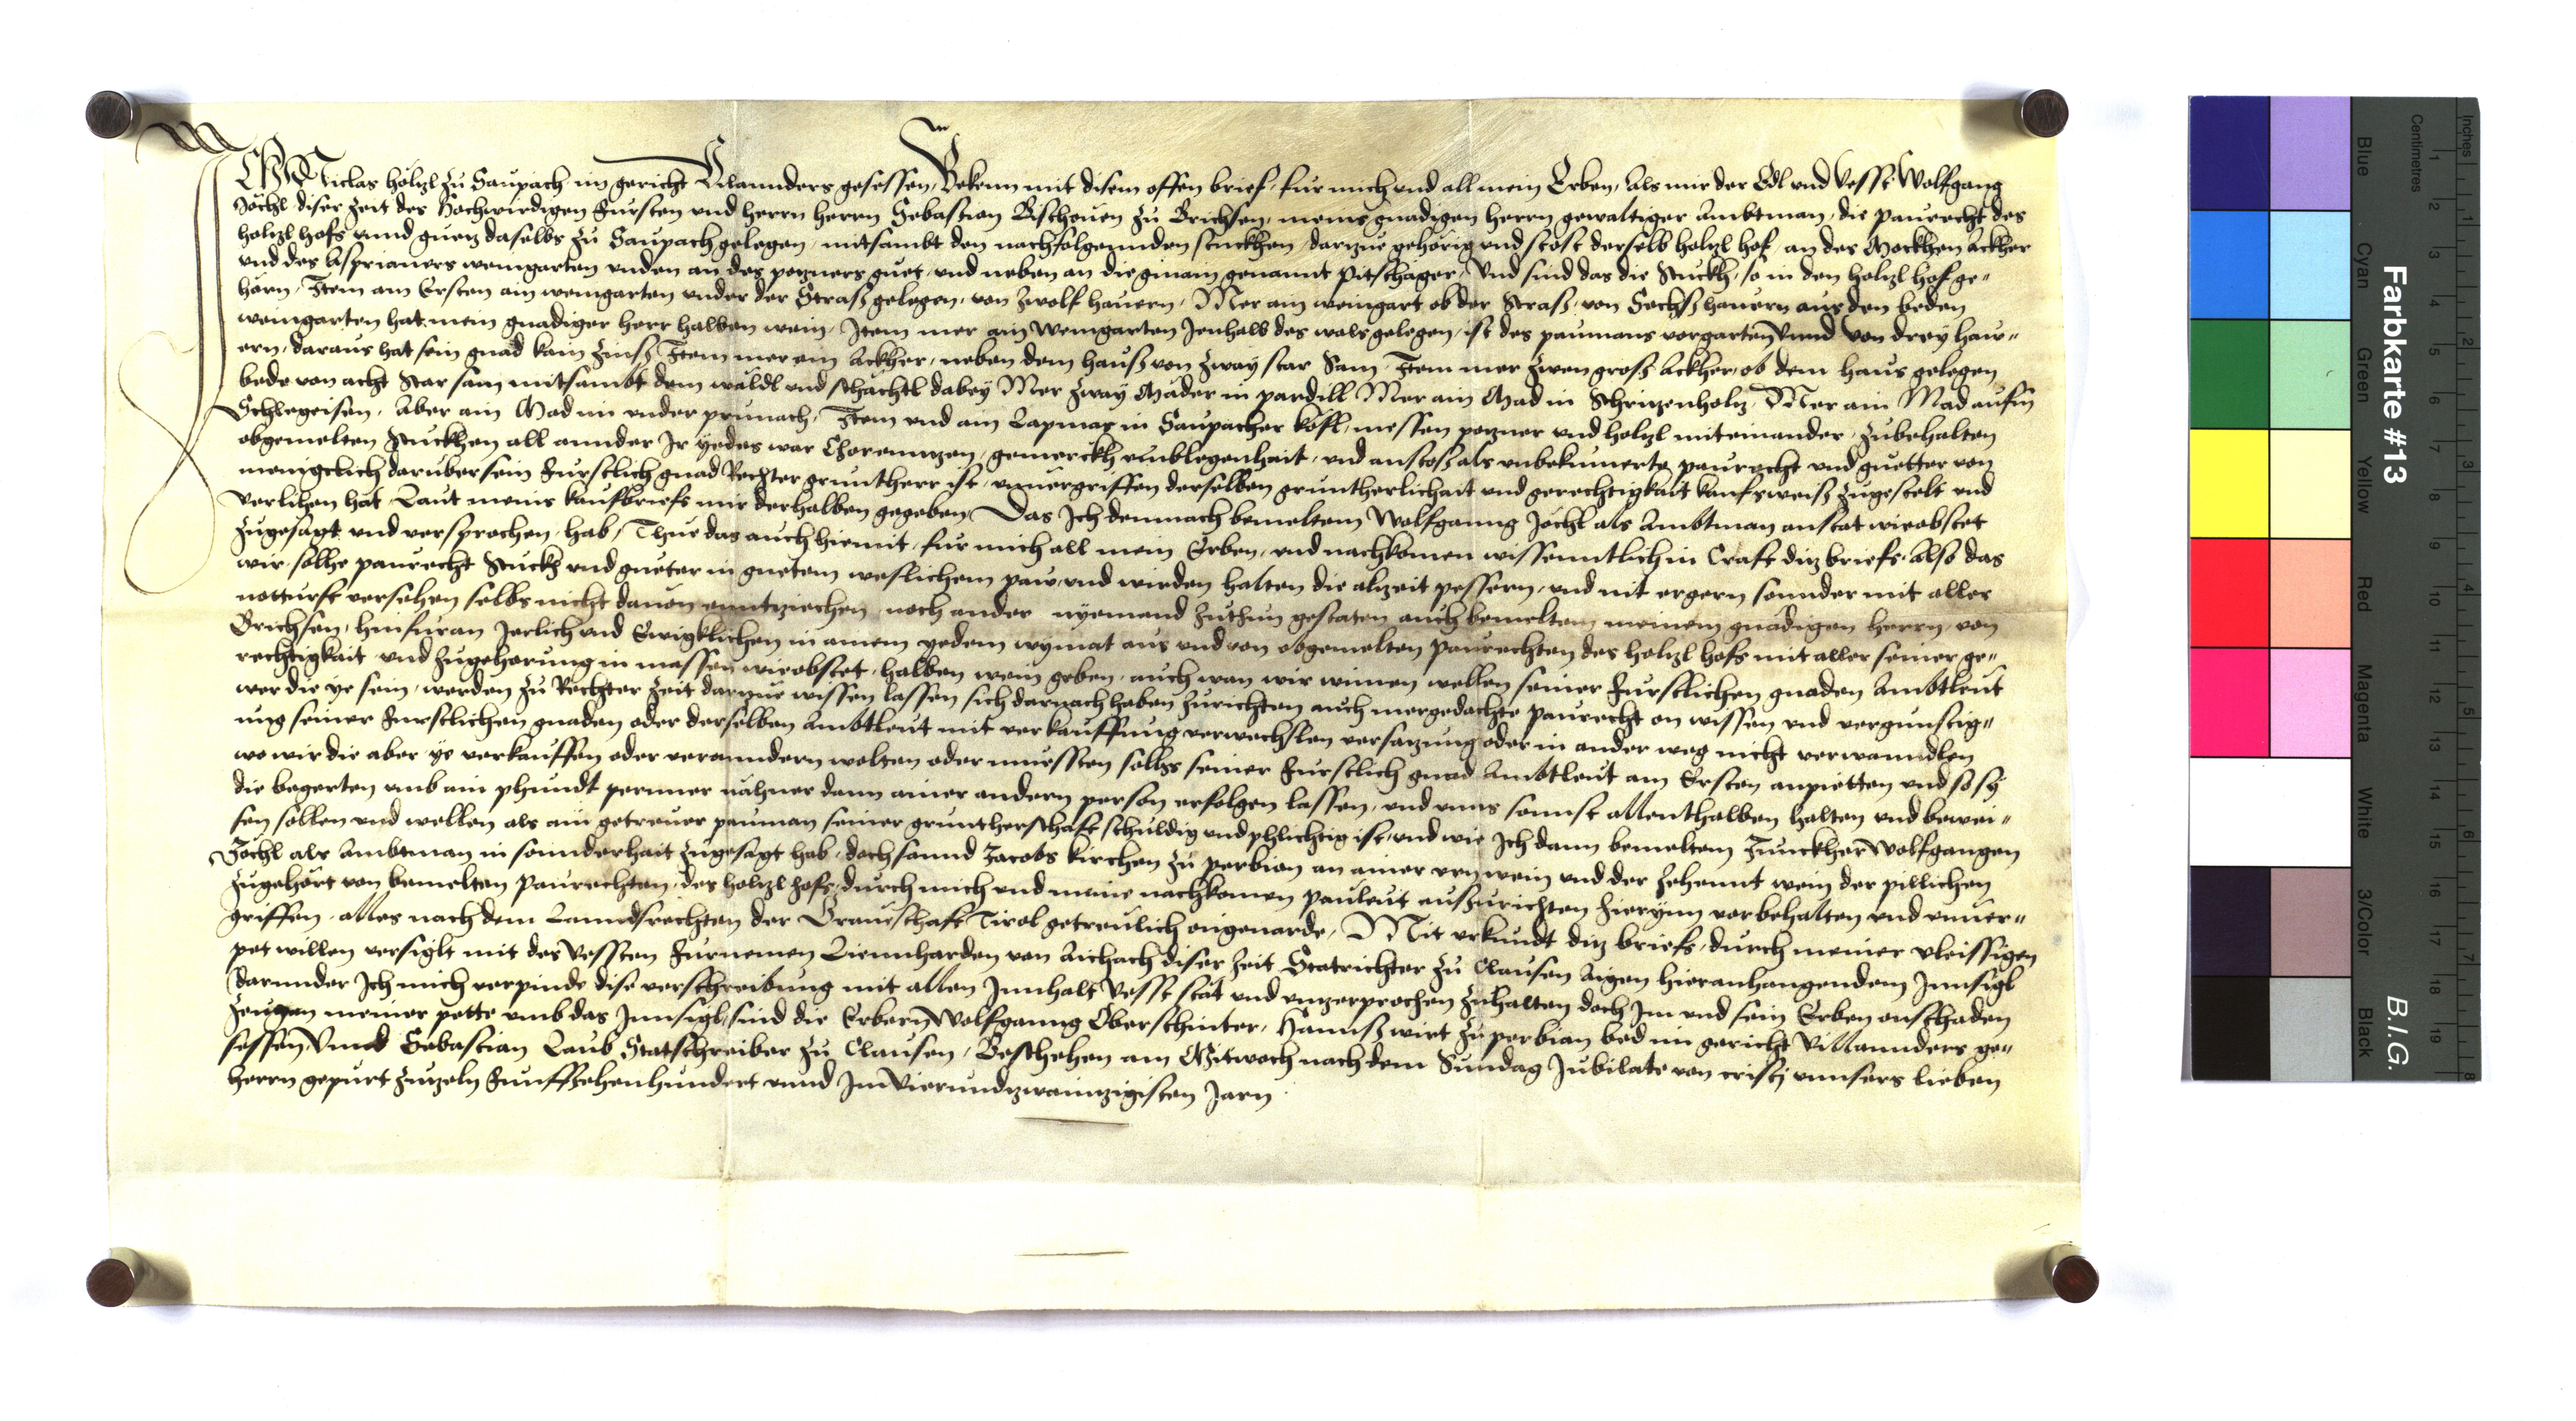 ICH Niclas hölzl zu Saupach im gericht Villannders gesessen, Bekenn mit disem offen brief, fur mich vnd all mein Erben, Als mir der Edl vnd Vesst Wolfgang
Jöchl diser zeit des Hochwirdigen Fursten vnd herrn herrn Sebastian Bischouen zu Brichsen, meins gnadigen herrn gewaltiger Ambtman, die paurecht des
holtzl hofs vnnd guetz daselbs zu Saupach gelegen, mitsambt den nachfolgennden stuckhen, dartzue gehorig vnd stost derselb holtzl hof, an des Mockhen Ackher
vnd des Asprianers weingarten vnden an des potzners guet, vnd neben an die gmain genannt pitschager, Vnd sind das die Stuckh, so in den holtzl hof ge"
horn, Item am Ersten ain weingarten vnder der Straß gelegen, von zwolf hauern, Mer ain weingart ob der Straß, von Sechß hauern aus den beden
weingarten hat mein gnadiger herr halben wein, Item mer ain Weingarten Jenhalb des wals gelegen, ist des paumans vorgarten Vnnd von drey haw"
ern, daraus hat sein gnad kain zinß Item mer ain Ackher, neben dem hauß von zway star Sam Item mer zwen groß Ackher, ob dem haus gelegen
bede von acht Star sam mitsambt dem wäldl vnd schachtl dabey Mer zway Mäder in pardill Mer ain Mad in Schrutzenholtz, Mer ain Mad aufm
Schlegeisen, Aber ain Mad im vnder prunach, Item vnd ain in Saupacher köfl, messen potzner vnd holtzl miteinander, zubehalten
obgemelten Stuckhen all annder Ir yedes war gemerckh vmblegenhait, vnd anstoß als vnbekumerte paurecht vnd guetter von
menigelich daruber sein Furstlich gnad Rechter gruntherr ist, vnuergriffen derselben gruntherlichait vnd gerechtigkait kaufsweiß zugestelt vnd
verlihen hat, Laut meins kaufbriefs mir derhalben gegeben, Das Ich demnach bemeltem Wolfganng Jöchl als Ambtman anstat wieobstet
zugesagt vnd versprochen, hab, Thue das auch hiemit, fur mich all mein Erben, vnd nachkomen wissenntlich in Craft ditz briefs, also das
wir, solhe paurecht Stuckh vnd gueter in guetem weslichem paw, vnd wirden halten die altzeit pessern, vnd nit ergern sonnder mit aller
notturft versehen selbs nicht dauon enntziechen, noch ander nyemand zuthun gestaten auch bemeltem meinem gnadigen herrn, von
Brichsen, hinfuran Jerlich vnd Ewigklichen in ainem yedem wymat aus vnd von obgemelten paurechten des holtzl hofs mit aller seiner ge"
rechtigkait vnd zugehorung in massen wieobstet, halben wein geben, auch wan wir wimen wellen seiner Furstlichen gnaden Ambtleut
wer die ye sein, werden zu Rechter zeit dartzue wissen lassen sich darnach haben zurichten auch mergedachte paurecht on wissen vnd vergunstig"
ung seiner Furstlichen gnaden oder derselben Ambtleut mit verkauffung verwechslen versatzung oder in ander weg nicht verwanndlen
wo wir die aber ye verkauffen oder veranndern wolten oder muessten sollts seiner Furstlich gnad Ambtleut am Ersten anpietten vnd so sy
die begerten vmb ain phundt perner nähner dann ainer andern person erfolgen lassen, vnd vnns sonnst allenthalben halten vnd bewei"
sen sollen vnd wellen als ain getreuer pauman seiner gruntherschaft schuldig vnd phlichtig ist, vnd wie Ich dann bemeltem Junckher Wolfgangen
Jochl als Ambtman in sonnderhait zugesagt hab, doch sannd Jacobs kirchen zu perbian an ainer vrn wein vnd der zehennt wein der pillichen
zugehört von bemelten paurechten, des holtzl hofs, durch mich vnd meine nachkomen pauleut außzurichten hierynn vorbehalten vnd vnuer"
griffen, alles nach dem Lanndsrechten der Graueschaft Tirol getreulich ongeuarde, Mit vrkundt ditz briefs, durch meiner vleissigen
pet willen versiglt mit des Vessten Furnemen Liennharden von Aichach diser zeit Statrichter zu Clausen Aigen hieranhangendem Innsigl
darunder Ich mich verpinde dise verschreibung mit allen Innhalt Vesst stat vnd vnzerprochen zuhalten doch Im vnd sein Erben onschaden
Zeugen meiner pette vmb das Innsigl, sind die Erbern Wolfganng Oberschinter, Hannß wirt zu perbian bed im gericht Villannders ge"
sessen Vnnd Sebastian Laub Statschreiber zu Clausen, Beschehen am Mitwoch nach dem Sundag Jubilate von cristj vnnsers lieben
herrn gepurt zutzeln Funffzehenhundert vnnd Im Vierundzwaintzigisten Jarn
Farbkarte #13
B.I.G.
Inches
Centimetres
Blue Cyan Green Yellow Red Magenta White 3/Color Black
1 2 3 4 5 6 7 8 9 10 11 12 13 14 15 16 17 18 19
1 2 3 4 5 6 7 8